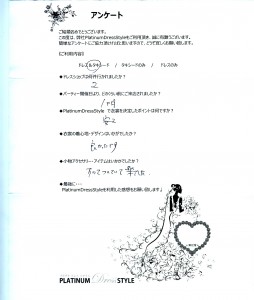 アンケート
ご結婚おめでとうございます。
この度は、弊社PlatinumDressStyleをご利用頂き、誠に有難うございます。
簡単なアンケートにご協力頂ければと思いますので、どうぞ宜しくお願い致します。
【ご利用内容】
ドレス&タキシード / タキシードのみ / ドレスのみ
●ドレスショップは何件行かれましたか?
2
●パーティー開催日より、どのくらい前にご来店されましたか?
1ヶ月
●PlatinumDressStyleで衣装を決定したポイントは何ですか?
安さ
●衣装の着心地・デザインはいかがでしたか?
良かったです
●小物アクセサリー・アイテムはいかがでしたか?
すべてついていて楽でした
●最後に…
PlatinumDressStyleを利用した感想をお願い致します♪
PLATINUM DressSTYLE